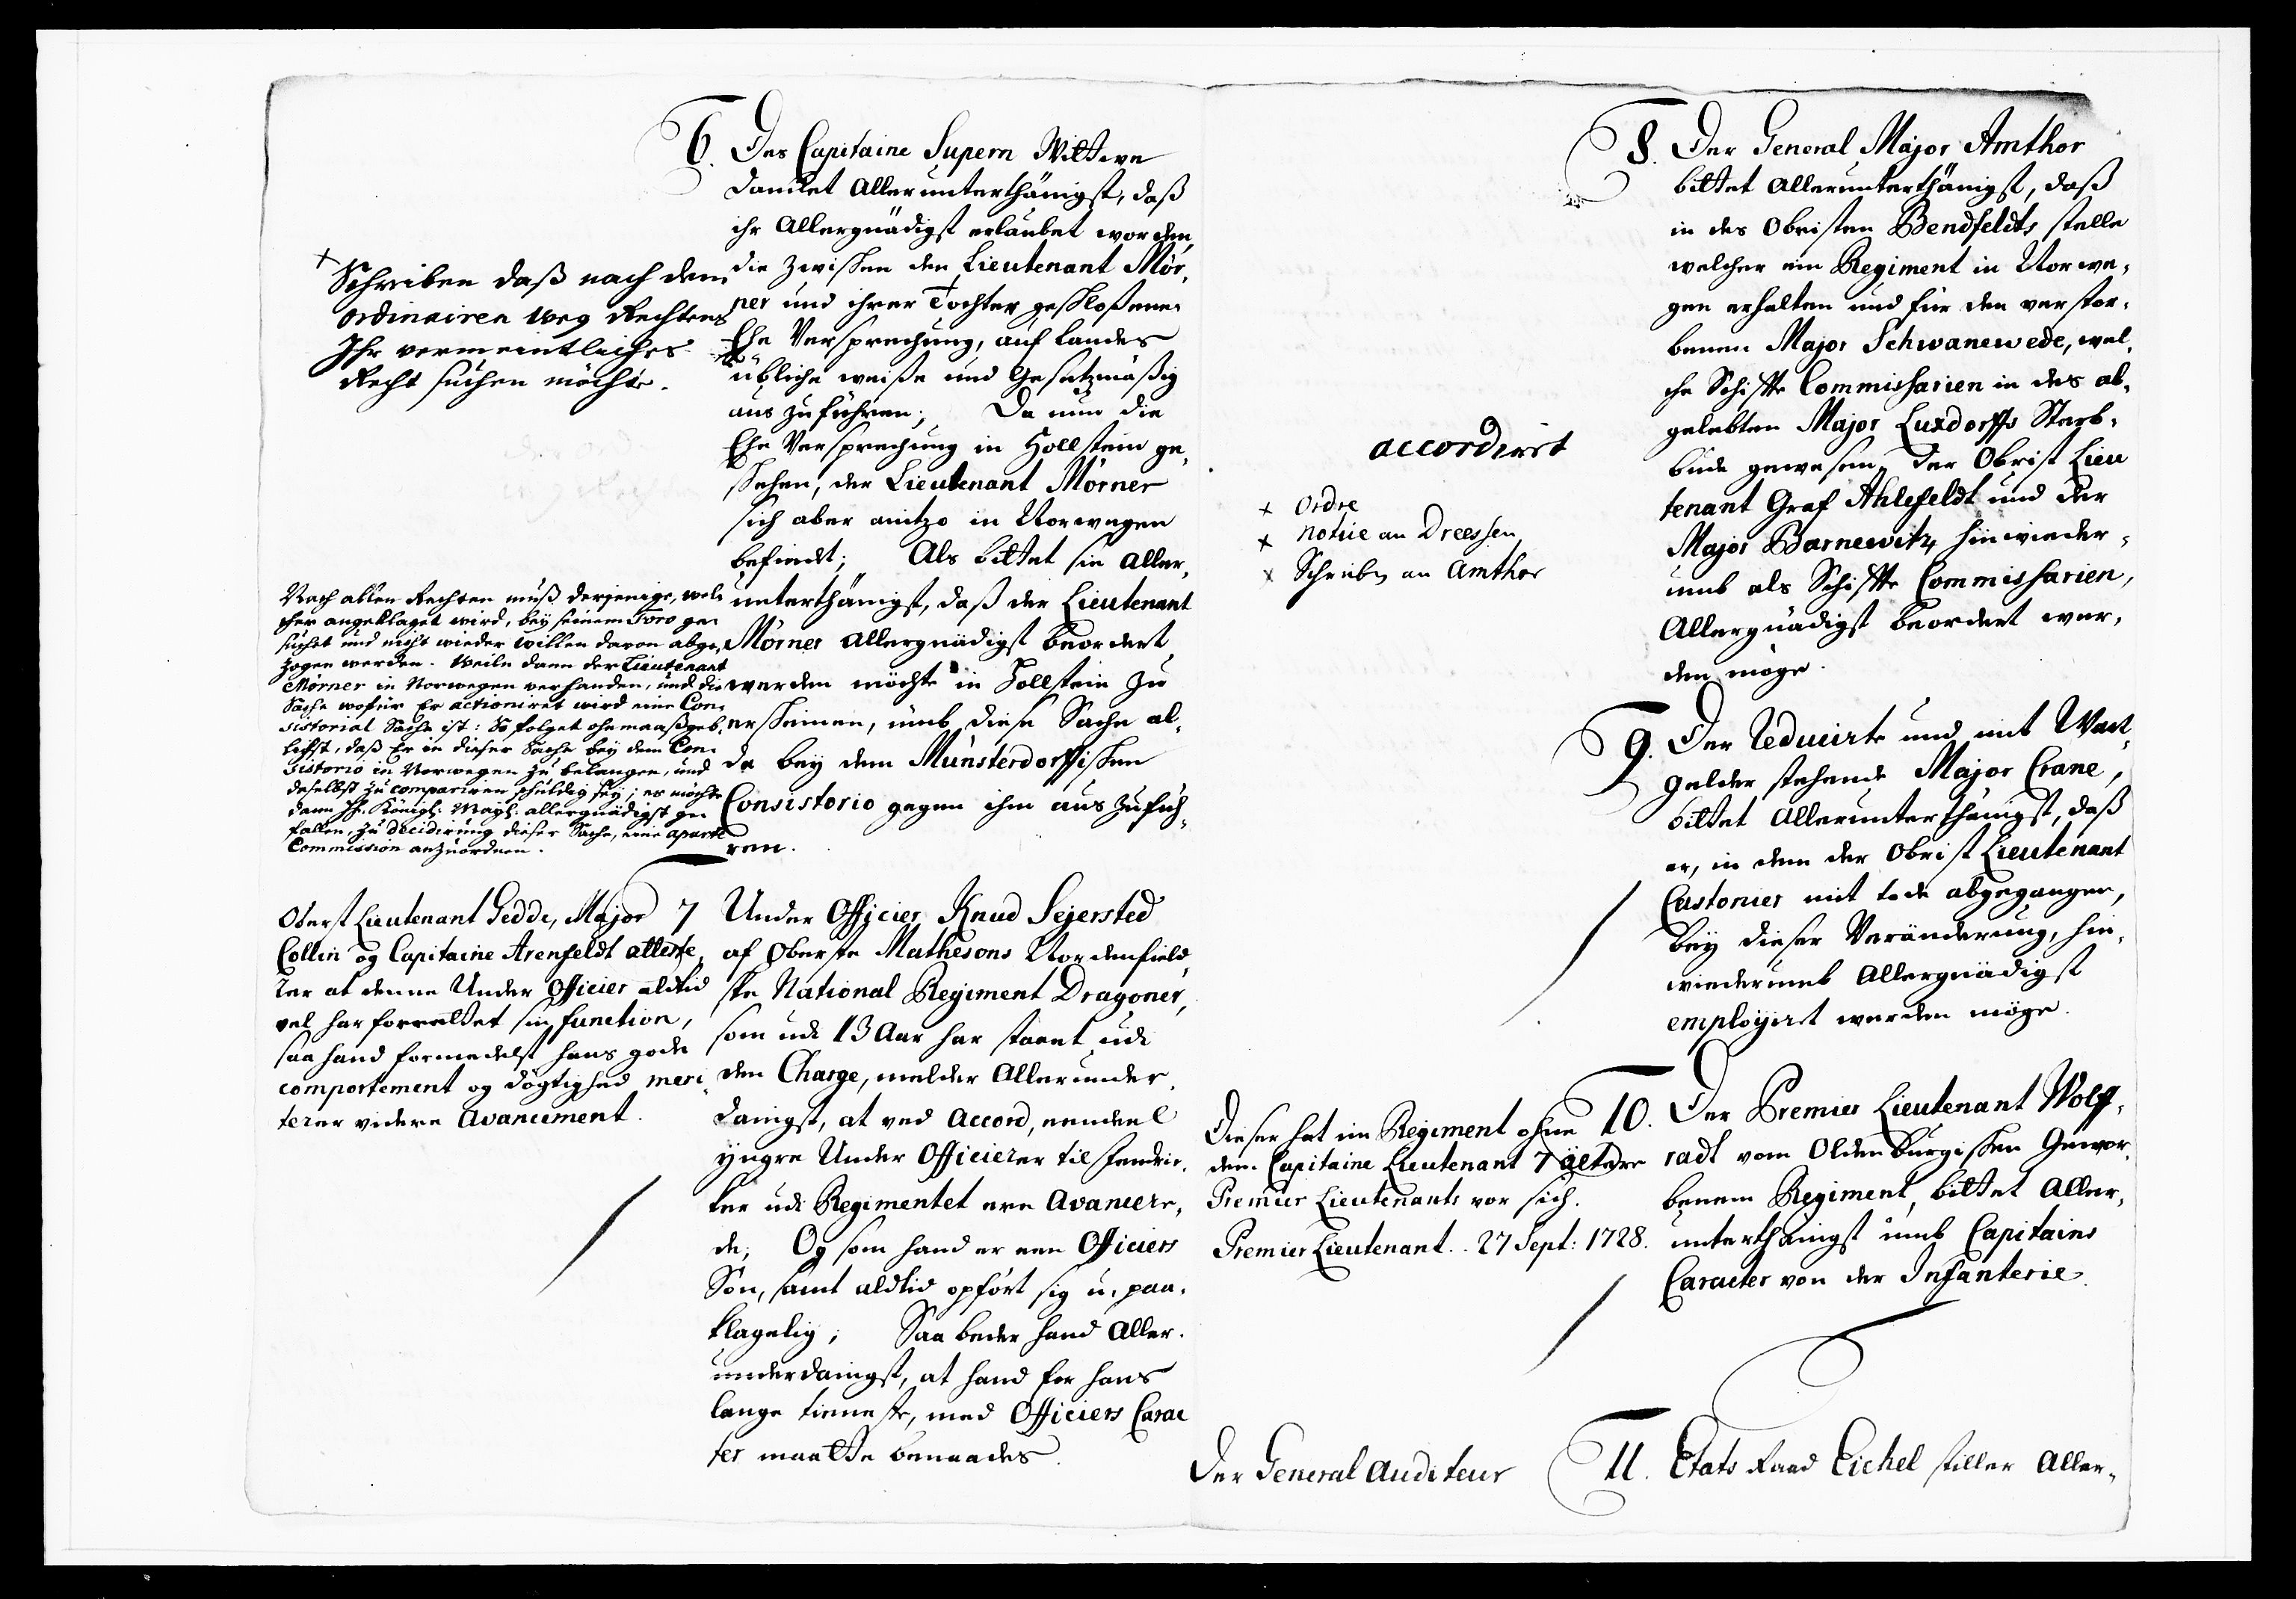 6. Des Capitaine Supern Wittwe
dancket Allerunterthänigst, daß
ihr Allergnädigst erlaubet worden,
die zwischen den Lieutenant Mör-
ner und ihrer Tochter geschloßene
Ehe Versprechung, auf landes
übliche weiße und Gesetzmäßig
auszuführen; Da nun die
Ehe Versprechung in Hollstein ge-
schehen, der Lieutenant Mörner
sich aber anitzo in Norwegen
befindt; Als bittet sie Aller-
unterthänigst, daß der Lieutenant
Mörner Allergnädigst beordert
werden möchte in Hollstein zu
erscheinen, umb diese Sache al-
da bey dem Münsterdorffischen
Consistorio gegen ihm auszufüh-
ren.
+ Schreiben daß nach dem
ordinairen Weg Rechtens
Ihr vermeintliches
Recht suchen möchte.
Nach allen Rechten muß derjenige, wel-
cher angeklaget wird, bey seinem Foro ge-
suchet und nicht wieder willen davon abge-
zogen werden. Weiln dann der Lieutenant
Mörner in Norwegen verhanden, und die
Sache wofür Er actioniret wird eine Con-
sistorial Sache ist: So folget ohnmaaßgeb-
lichst, daß Er in dieser Sache bey dem Con-
sistorio in Norwegen zu belangen, und
deselbst zu compariren schuldig sey; es möchte
dann Ihr. Königl. Mayt. allergnädigst ge-
fallen, zu decidirung dieser Sache, eine aparte
Commission anzuordnen.
7 Under Officier Knud Sejersted
af Oberste Mathesons Nordenfield-
ske National Regiment Dragoner,
som udi 13 Aar har staaet udi
den Charge, melder Allerunder-
danigst, at ved Accord, eendeel
yngre Under Officierer til Fendric-
ker udi Regimentet ere Avancere-
de; Og som hand er een Officiers
Søn, samt altid opført sig u-paa-
klagelig; Saa beder hand Aller-
underdanigst, at hand for hans
lange tieneste, med Officiers Carac
ter maatte benaades.
Oberst Lieutenant Gedde, Major
Collin og Capitaine Arenfeldt atteste-
rer at denne Under Officier altid
vel har forrettet sin function,
saa hand formedelst hans gode
comportement og dögtighed meri-
terer videre Avancement.
8. Der General Major Amthor
bittet Allerunterthänigst, daß
in des Obristen Bendfeldts stelle
welcher ein Regiment in Norwe-
gen erhalten und für den verstor-
benen Major Schwanewede, wel-
che Schiffte Commissarien in des ab-
gelebten Major Luxdorffs Sterb-
bude gewesen, der Obrist Lieu
tenant Graf Ahlefeldt und der
Major Barnewitz hinwieder-
umb als Schiffte Commissarien,
Allergnädigst beordert wer-
den möge.
accordirt
+ Ordre
+ Notice an Dreessen
+ Schreiben an Amthor
9. Der Reducirte und mit Wart-
gelder stehende Major Crane,
bittet Allerunterthänigst, daß
er, in dem der Obrist Lieutenant
Castonier mit tode abgegangen,
bey dieser Veränderung, hin-
wiederumb Allergnädigst
employirt werden möge.
10. Der Premier Lieutenant Wolf-
radt vom Oldenburgischen Gewor-
benem Regiment, bittet Aller-
unterthänigst umb Capitains
Caracter von der Infanterie.
Dieser hat im Regiment ohne
dem Capitaine Lieutenant 7 ältere
Premier Lieutenants vor sich.
Premier Lieutenant. 27 Sept: 1728.
11. Etats Raad Eichel stiller Aller-
Der General Auditeur